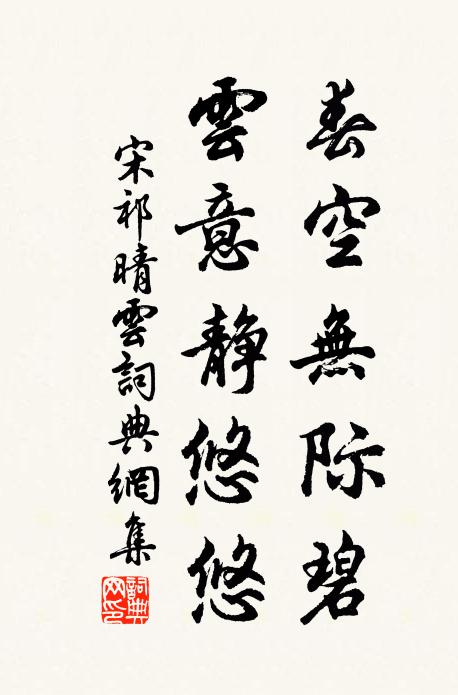 春空無际碧
雲意静悠悠
宋祁晴雲詞典網集
詞典
网印